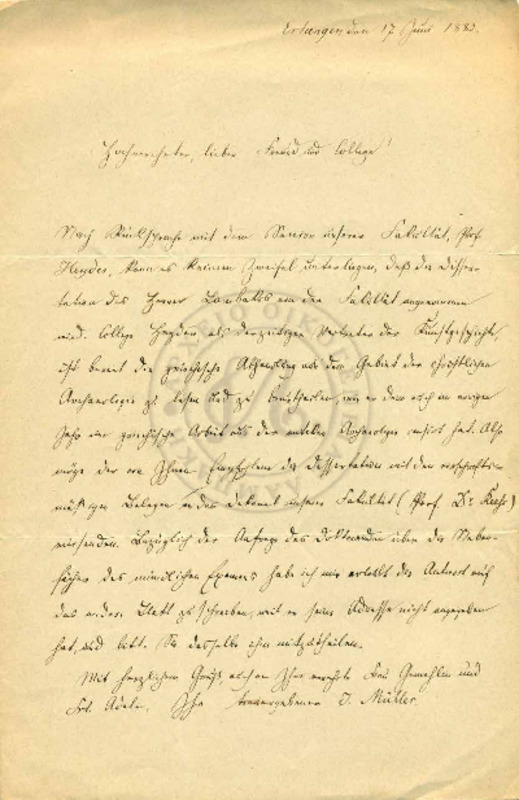 Erlangen den 17 Juni 1883.
Hochverehrter, lieber Freund und College!
Nach Rücksprache mit dem Senior unserer Fakultät, Prof.
Heyder, kann es keinem Zweifel unterliegen, daß die Disser-
tation des Herrn Lambakis von der Fakultät angenommen
wird. College Heyder als derzeitiger Vertreter der Kunstgeschichte,
ist bereit die griechische Abhandlung aus dem Gebiet der christlichen
Archaeologie zu lesen und zu beurtheilen, wie er denn auch im vorigen
Jahr eine griechische Arbeit aus der antiken Archaeologie hat. Also
möge der von Ihnen Empfohlene die Dissertation mit den vorschrifts-
mäßigen Belegen an das Dekanat unserer Fakultät (Prof. Dr.
einsenden. Bezüglich der Anfrage des Doktoranden über die Neben-
fächer des mündlichen Examens habe ich mir erlaubt die Antwort auf
das andere Blatt zu schreiben, weil er seine Adresse nicht angegeben
hat, und bitte Sie dasselbe ihm mitzutheilen.
Mit herzlichem Gruß, auch an Ihre verehrte Frau Gemahlin und
Frl. Adele, Ihr treuergebener I. Müller.